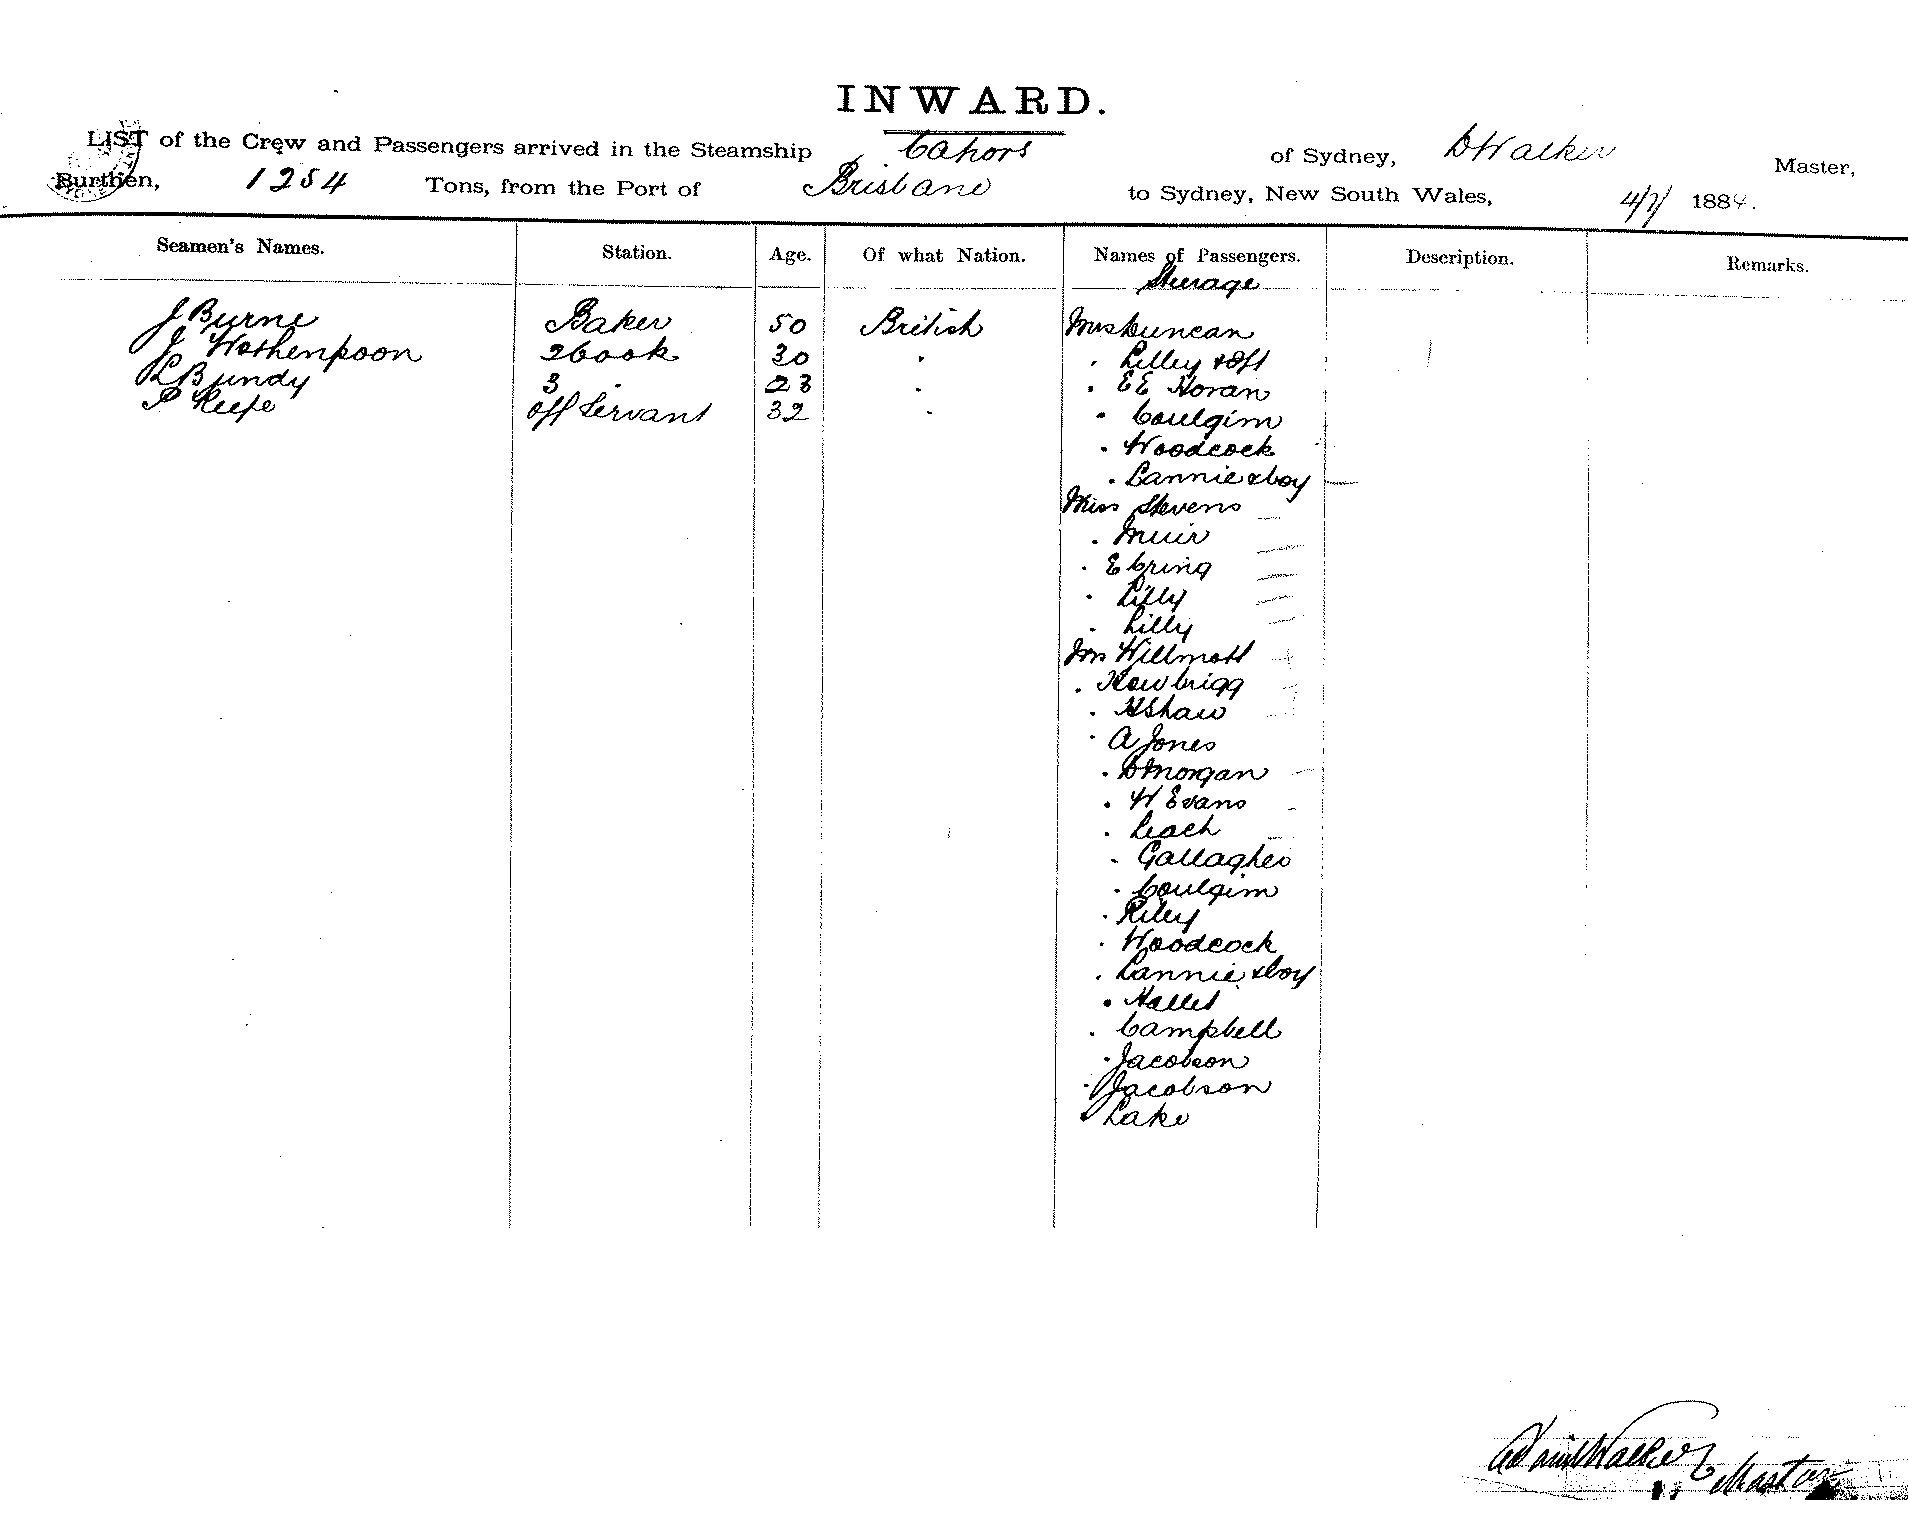 INWARD.
LIST of the Crew and Passengers arrived in the Steamship Cahors of Sydney, D Walker Master,
Burthen, 1254 Tons, from the Port of Brisbane to Sydney, New South Wales, 4/7/ 1884.
Seamen's Names. Station. Age. Of what Nation. Names of Passengers. Description. Remarks.
Steerage
J Byrne Baker 50 British Mrs Duncan
J Wotherspoon 2 Cook 30 " " Lilley &
L Bundy 3 " 23 " " E E Horan
P Keefe Off Servant 32 " " Coulgim
" Woodcock
" Lannie & boy
Miss Stevens
" Muir
" E Ebring
" Lilly
" Lilly
Mr Willmott
" Howbrigg
" H Shaw
" A Jones
" D Morgan
" W Evans
" Leach
" Gallagher
" Coulgim
" Riley
" Woodcock
" Lannie & boy
" Hallet
" Campbell
" Jacobson
" Jacobson
" Lake
Walker
Master